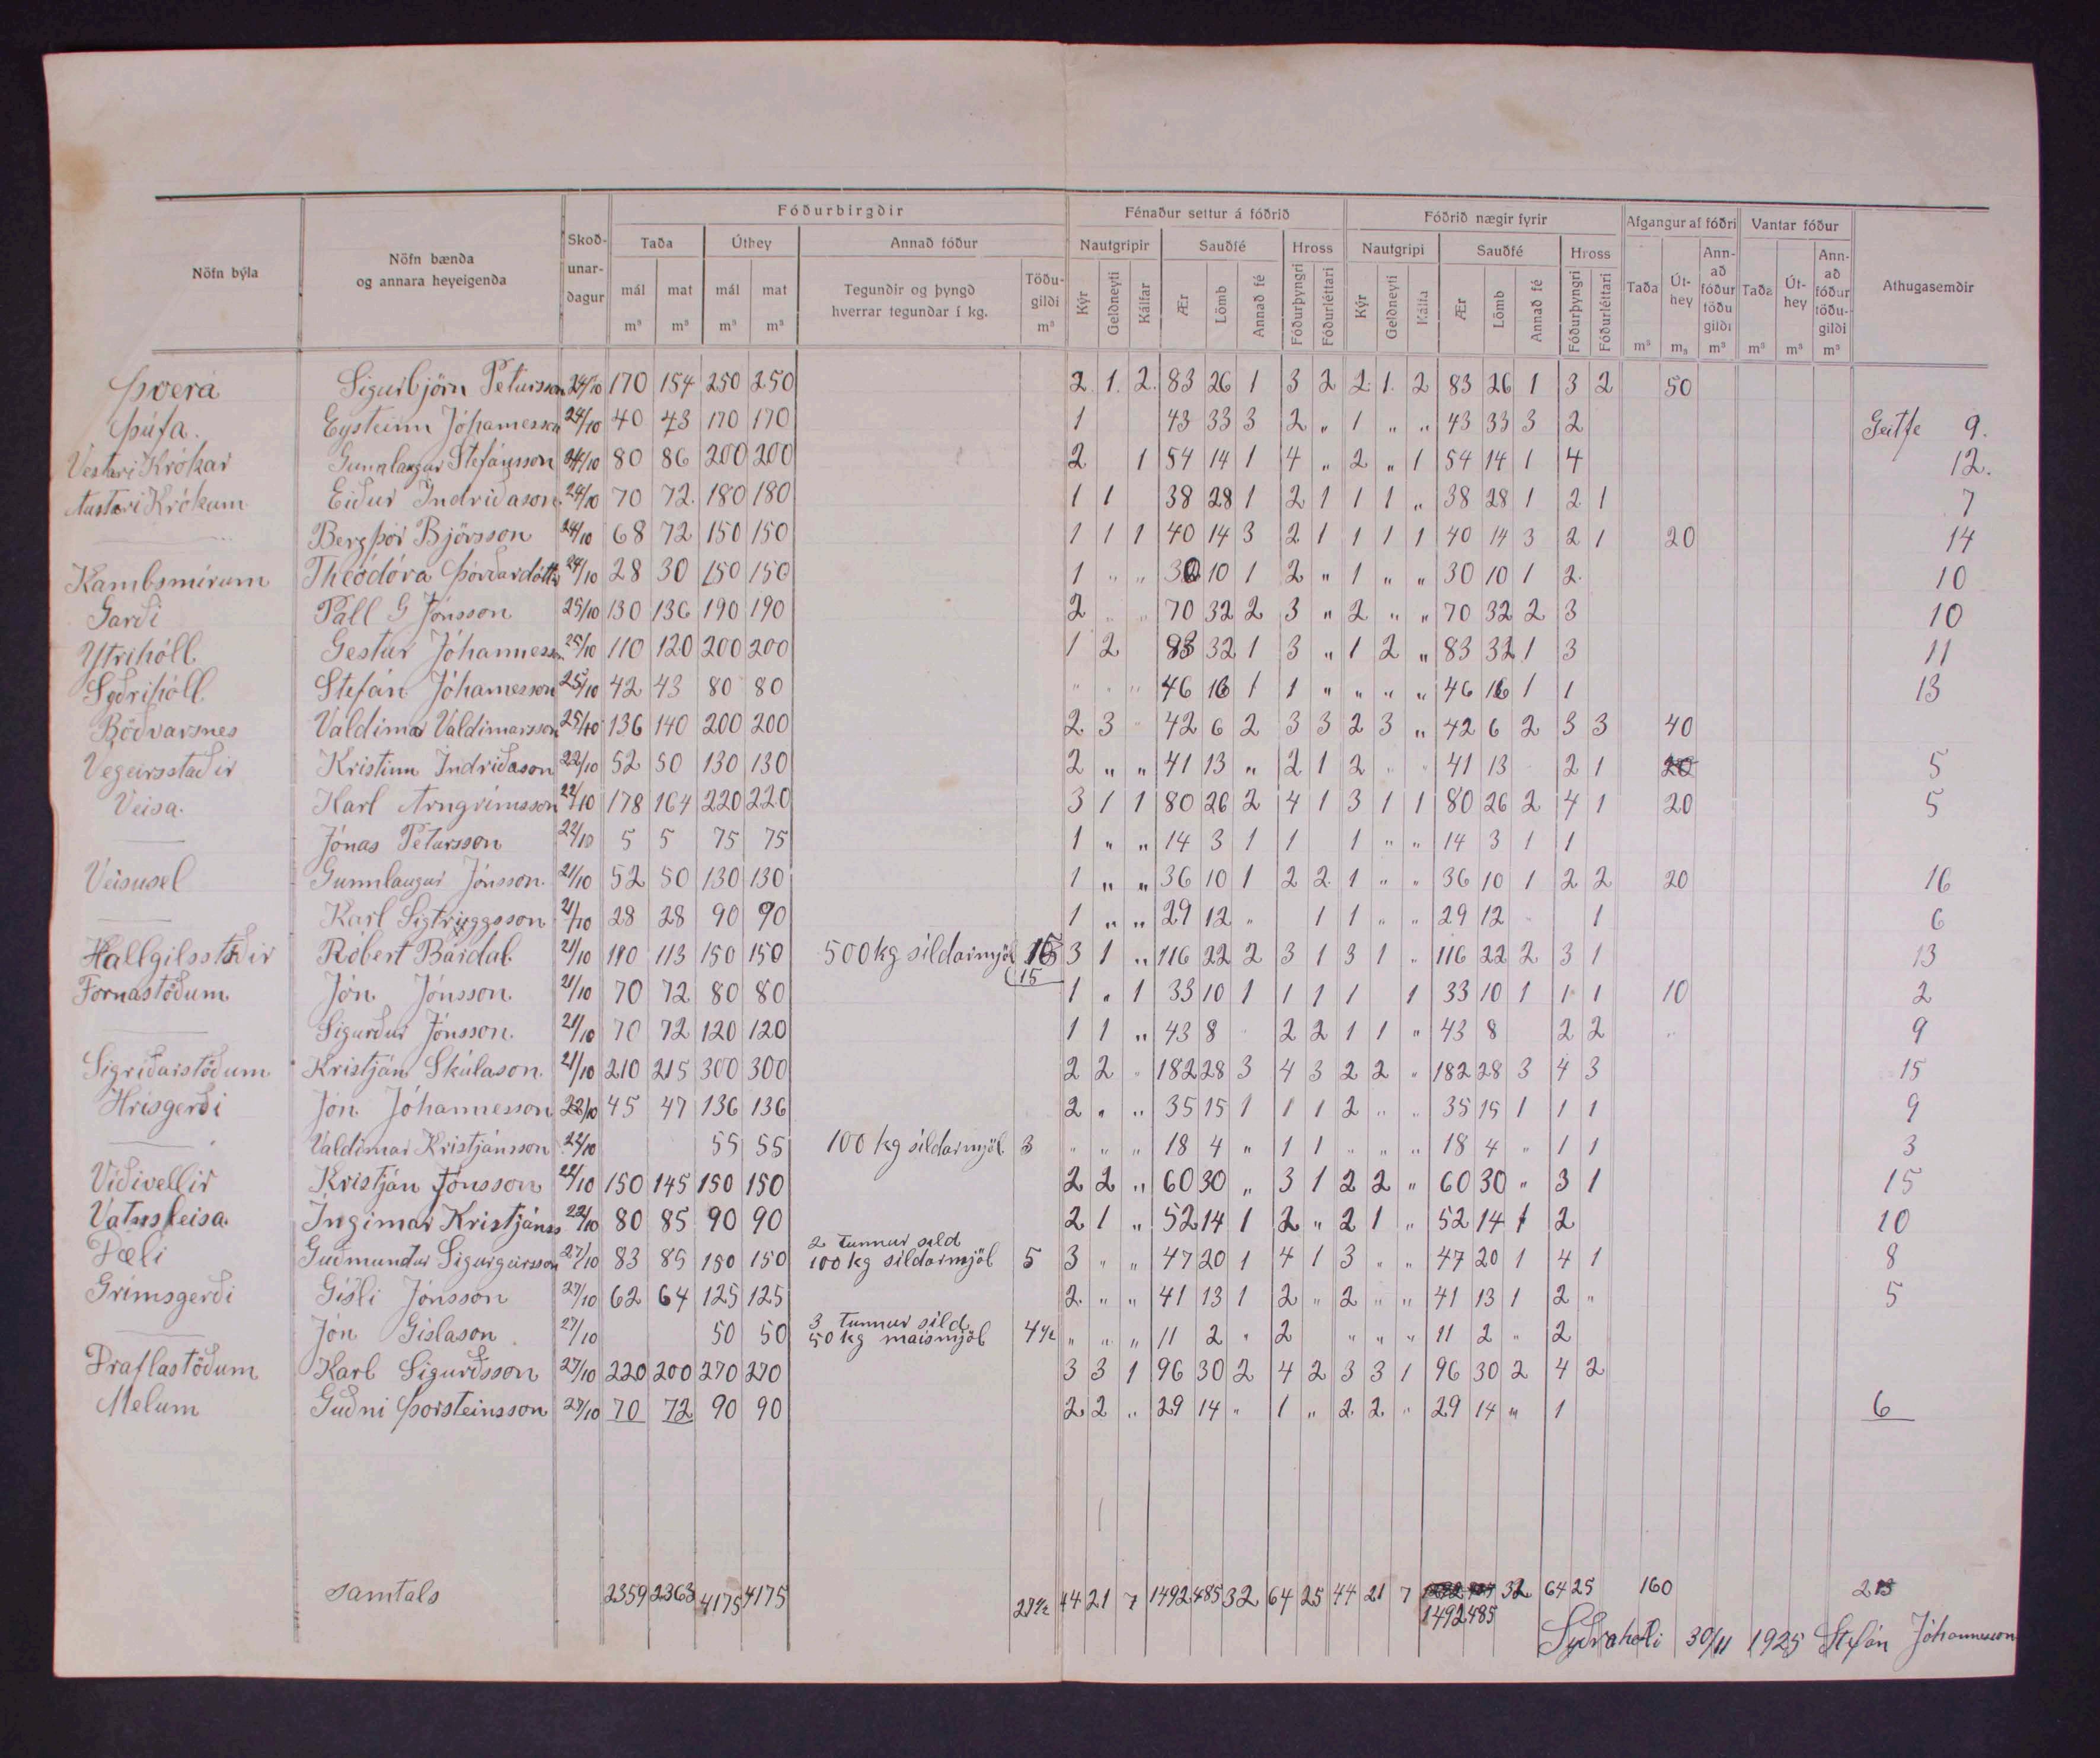 Nöfn býla Nöfn bænda og annara heyeigenda Skoð-unar-dagur Fóðurbirgðir Fénaður settur á fóðrið Fóðrið nægir fyrir Afgangur af fóðri Vantar fóður Athugasemdir
Taða Úthey Annað fóður Nautgripir Sauðfé Hross Nautgripi Sauðfé Hross Taða Út-hey Ann-að fóður töðu gildi Taða Út-hey Ann-að fóður töðu-gildi
mál mat mál mat Tegundir og þyngd hverrar tegundar í kg. Töðu-gildi Kýr Geldneyti Kálfar Ær Lömb Annað fé Fóðurþyngri Fóðurléttari Kýr Geldneyti Kálfa Ær Lömb Annað fé Fóðurþyngri Fóðurléttari
m³ m³ m³ m³ m³ m³ m³ m³ m³ m³ m³
Þverá Sigurbjörn Pétursson 24/10 170 154 250 250 2. 1. 2. 83 26 1 3 2 2. 1. 2 83 26 1 3 2 50
Þúfa. Eysteinn Jóhamesson 24/10 40 43 170 170 1 43 33 3 2 „ 1 „ „ 43 33 3 2 9.
Vestari Krókar Gunnlaugur Stefánsson 24/10 80 86 200 200 2 1 54 14 1 4 „ 2 „ 1 54 14 1 4 12.
Austari Krókum Eiður Indriðason 24/10 70 72. 180 180 1 1 38 28 1 2 1 1 1 „ 38 28 1 2 1 7
— Bergþór Björsson 24/10 68 72 150 150 1 1 1 40 14 3 2 1 1 1 1 40 14 3 2 1 20 14
Kambsmírum Theódóra Þórðardóttir 24/10 28 30 150 150 1 „ „ 30 10 1 2 „ 1 „ „ 30 10 1 2. 10
Garði Páll G Jónsson 25/10 130 136 190 190 2 „ „ 70 32 2 3 „ 2 „ „ 70 32 2 3 10
Ytrihóll Gestur Jóhannesson 25/10 110 120 200 200 1 2 83 32 1 3 „ 1 2 „ 83 32 1 3 11
Syðrihóll Stefán Jóhamesson 25/10 42 43 80 80 „ „ „ 46 16 1 1 „ „ „ „ 46 16 1 1 13
Böðvarsnes Valdimar Valdimarsson 25/10 136 140 200 200 2 3 „ 42 6 2 3 3 2 3 „ 42 6 2 3 3 40
Vegeirsstaðir Kristinn Indriðason 22/10 52 50 130 130 2 „ „ 41 13 „ 2 1 2 „ „ 41 13 2 1 20 5
Veisa. Karl Arngrímsson 22/10 178 164 220 220 3 1 1 80 26 2 4 1 3 1 1 80 26 2 4 1 20 5
— Jónas Pétursson 22/10 5 5 75 75 1 „ „ 14 3 1 1 1 „ „ 14 3 1 1
Veisusel Gunnlaugur Jónsson. 21/10 52 50 130 130 1 „ „ 36 10 1 2 2 1 „ „ 36 10 1 2 2 20 16
— Karl Sigtryggsson 21/10 28 28 90 90 1 „ „ 29 12 „ 1 1 „ „ 29 12 1 6
Hallgilsstaðir Róbert Bárdal. 21/10 110 113 150 150 500 kg síldarmjöl 15 3 1 „ 116 22 2 3 1 3 1 „ 116 22 2 3 1 13
Fornastöðum Jón Jónsson 21/10 70 72 80 80 15 1 „ 1 33 10 1 1 1 1 1 33 10 1 1 1 10 2
— Sigurður Jónsson. 21/10 70 72 120 120 1 1 „ 43 8 2 2 1 1 „ 43 8 2 2 9
Sigríðarstöðum Kristján Skúlason 21/10 210 215 300 300 2 2 „ 182 28 3 4 3 2 2 „ 182 28 3 4 3 15
Hrísgerði Jón Jóhannesson 22/10 45 47 136 136 2 „ „ 35 15 1 1 1 2 „ „ 35 15 1 1 1 9
— Valdimar Kristjánsson 22/10 55 55 100 kg síldarmjöl 3 „ „ „ 18 4 „ 1 1 „ „ „ 18 4 „ 1 1 3
Víðivellir Kristján Jónsson 22/10 150 145 150 150 2 2 „ 60 30 „ 3 1 2 2 „ 60 30 „ 3 1 15
Vatnsleisa. Ingimar Kristjánss 22/10 80 85 90 90 2 1 „ 52 14 1 2 „ 2 1 „ 52 14 1 2 10
Dæli Guðmundur Sigurgeirsson 27/10 83 85 150 150 2 tunnur síld 100 kg síldarmjöl 5 3 „ „ 47 20 1 4 1 3 „ „ 47 20 1 4 1 8
Grímsgerði Gísli Jónsson 27/10 62 64 125 125 2. „ „ 41 13 1 2 „ 2 „ „ 41 13 1 2 „ 5
— Jón Gíslason 27/10 50 50 3 tunnur síld 50 kg maísmjöl 4 ½ „ „ „ 11 2 „ 2 „ „ „ 11 2 „ 2
Draflastöðum Karl Sigurðsson 27/10 220 200 270 270 3 3 1 96 30 2 4 2 3 3 1 96 30 2 4 2
Melum Guðni Þorsteinsson 27/10 70 72 90 90 2 2 „ 29 14 „ 1 „ 2 2 „ 29 14 „ 1 6
Samtals 2359 2363 4175 4175 27½ 44 21 7 1492 485 32 64 25 44 21 7 32 64 25 160 213
1492 485
Syðrahóli 30/11 1925 Stefán Jóhannesson